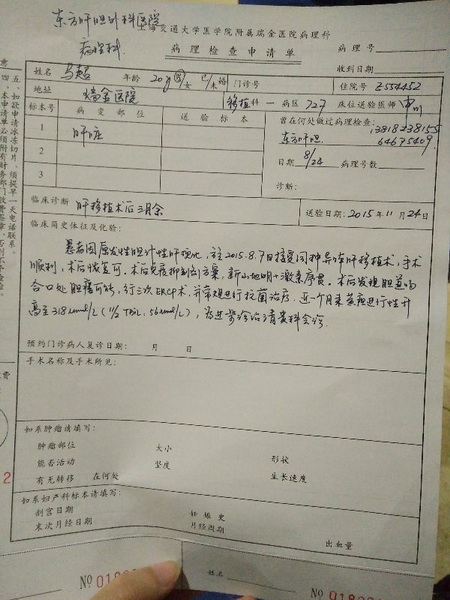 东方肝胆外科医院
病理科
海交通大学医学院附属瑞金医院病理科
病理检查申请单
病理号
收到日期
姓名 马超 年龄 20岁 男 女 已/未婚 门诊号 住院号 Z554452
地址 瑞金医院 移植科 病区 727 床位送验医师
标本号 病变部位 送验标本 曾在何处做过病理检查:
1 肝脏
13818238155
东方肝胆 64675409
2
日期 8/24 病理号数
3
诊断:
临床诊断 肝移植术后三月余 送验日期:2015年11月24日
临床简史体征及化验:
患者因原发性胆汁性肝硬化,于2015.8.7日接受同种异体肝移植术,手术
顺利,术后恢复可,术后免疫抑制剂方案,新山地明+激素序贯。术后发现胆道吻
合口处胆漏可能,行三次ERCP术,并常规进行抗菌治疗,近一个月来黄疸进行性升
高至318umol/L
预约门诊病人复诊日期: 月 日
手术名称及手术所见:
如系肿瘤请填写:
肿瘤部位 大小 形状
能否活动 坚度 生长速度
有无转移 在何处
如系妇产科标本请填写:
刮宫日期 妊娠史
末次月经日期 月经周期 出血量
姓名
№
五、如欲申请冰冻切片,须提早一天电话联系。